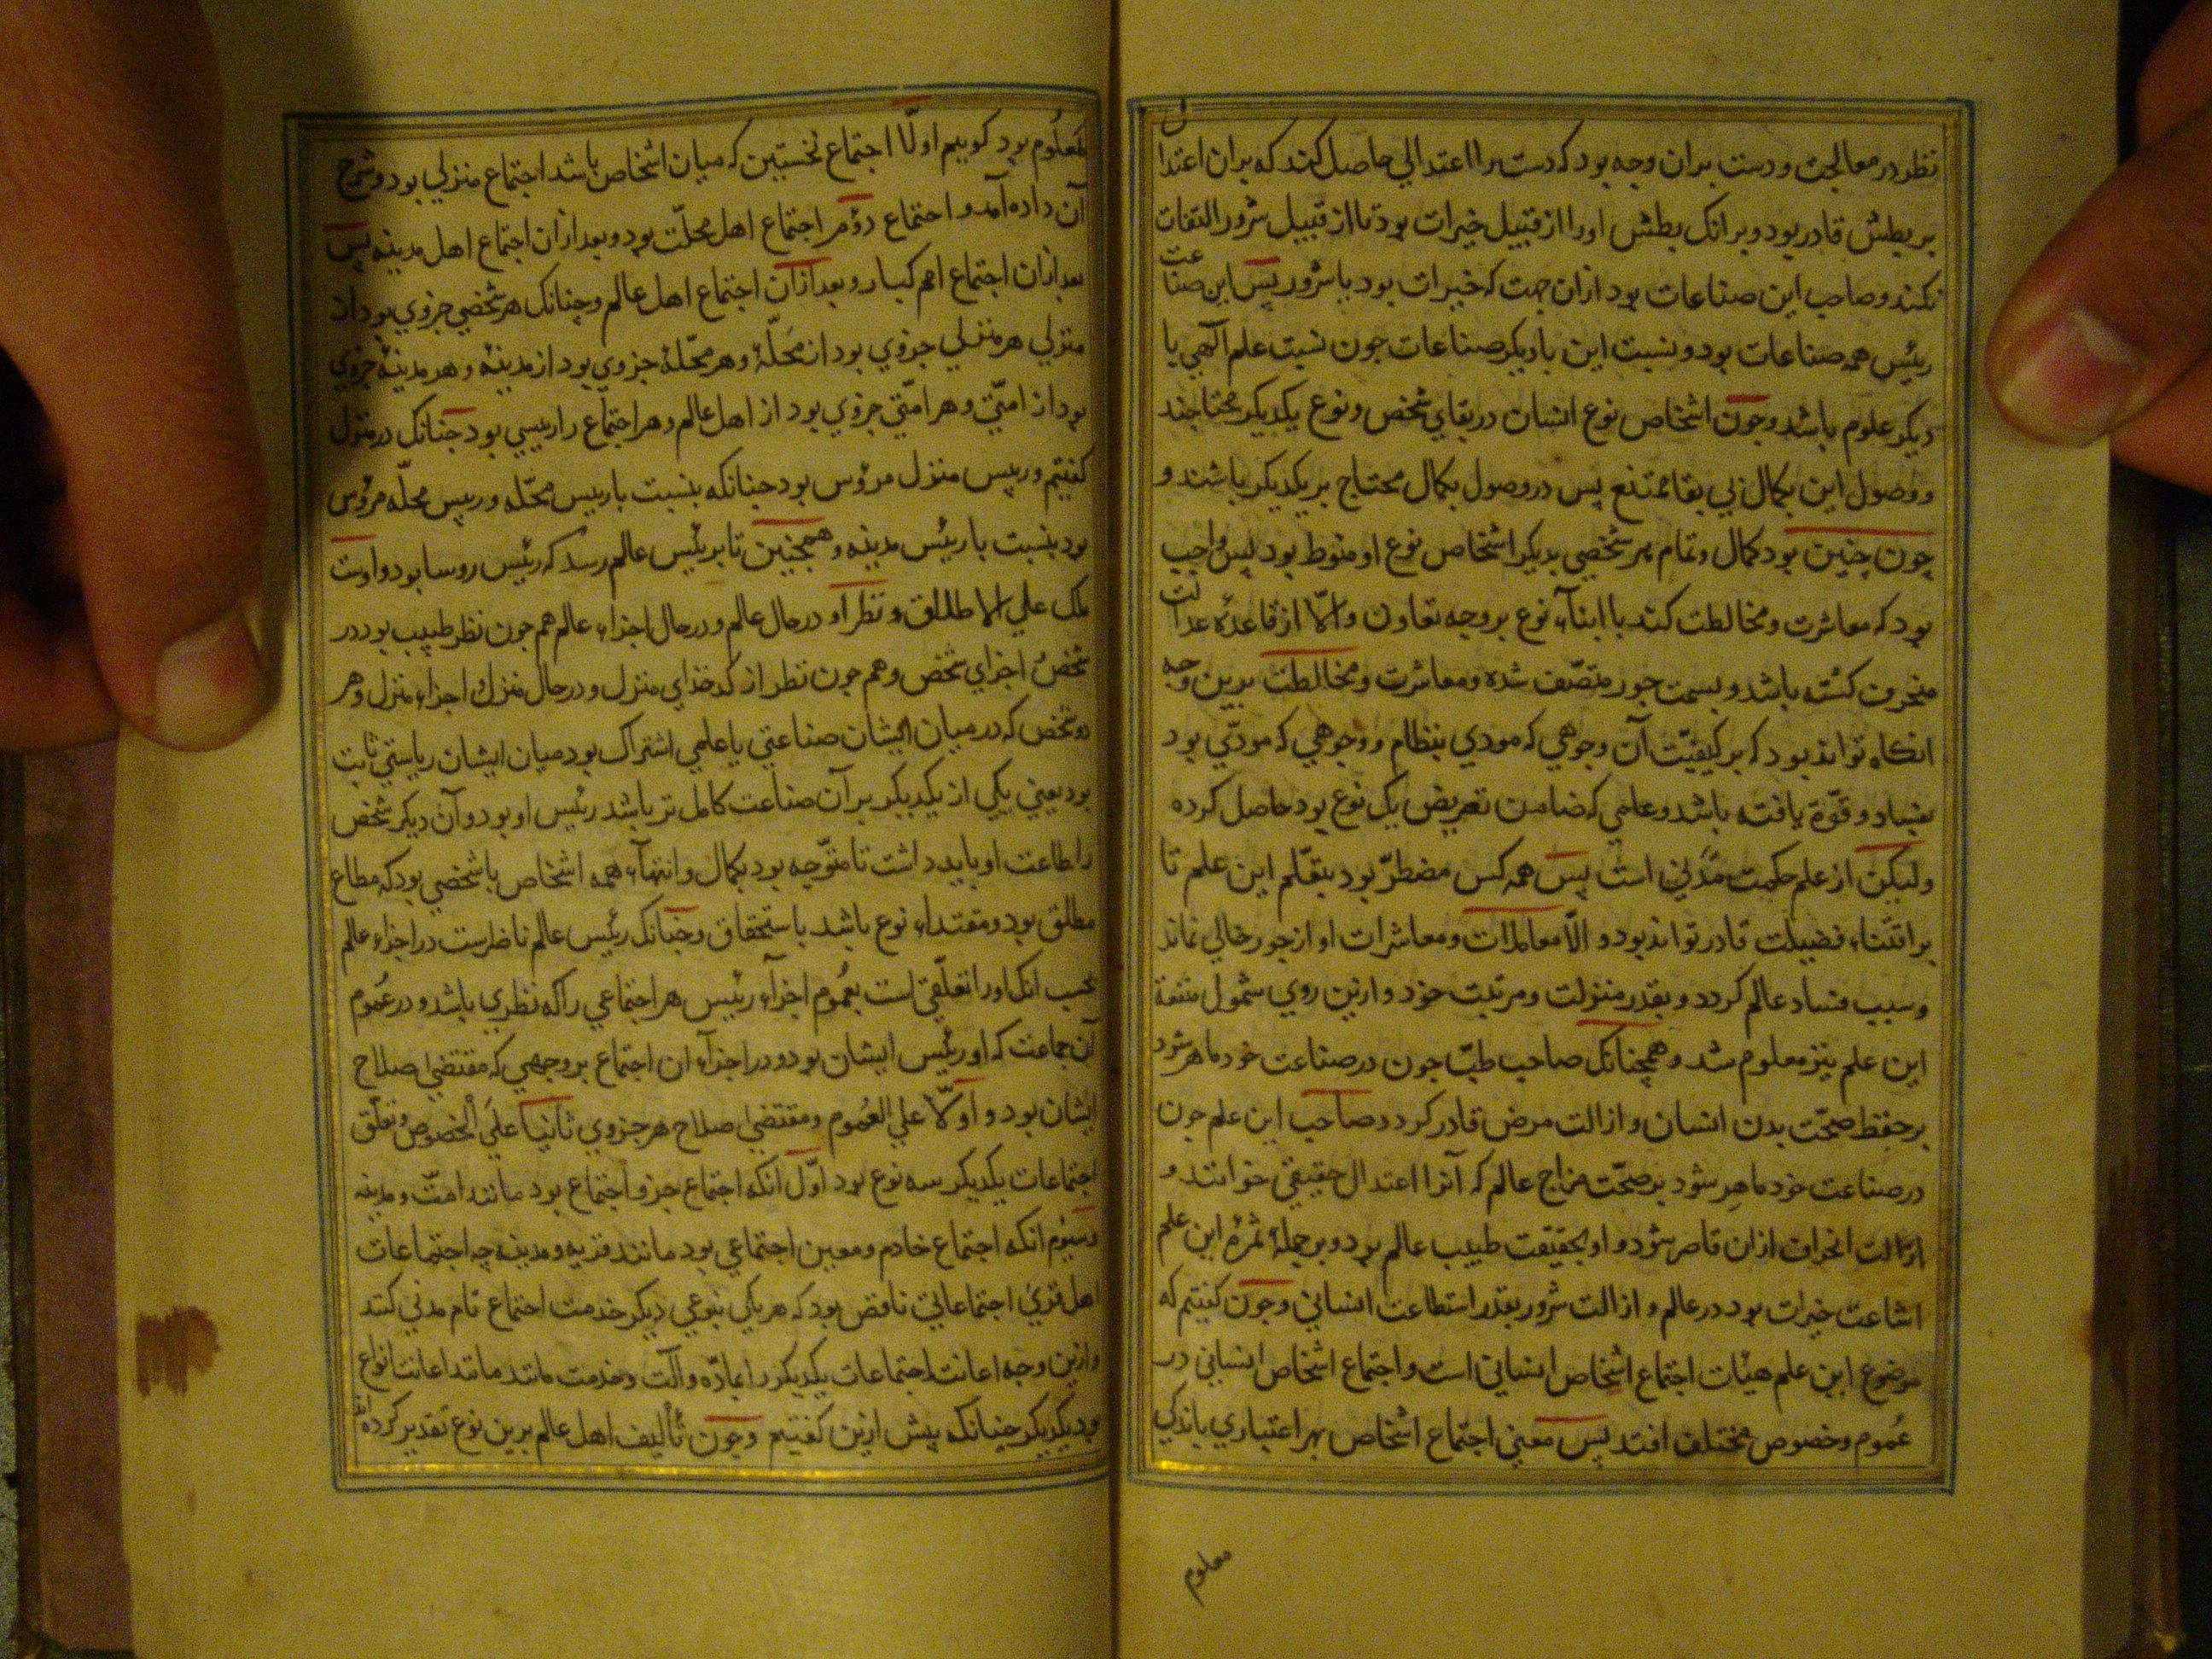 نظر در معالجت و دست بران وجه بود که دست را اعتدالي حاصل کند که بران اعتدا
بر بطش قادر بود و برانک بطش اورا از قبیل خیرات بود تا از قبیل شرور التفات
نکند و صاحب این صناعات بود ازان جهت که خیرات بود یا شرور پس این صناعت
رئیس همه صناعات بود و نسبت این با دیگر صناعات چون نسبت علم آلهي با
دیگر علوم باشد و چون اشخاص نوع انسان در بقاي شخص و نوع یکدیگر محتاجند
و وصول این بکمال بي بقا ممتنع پس در وصول بکمال محتاج بر یکدیگر باشند و
چون چنین بود کمال و تمام هر شخصي بدیگر اشخاص نوع او منوط بود پس واجب
بود که معاشرت و مخالطت کند با ابناء نوع بر وجه تعاون و الّا از قاعدۀ عدالت
منحرف کشته باشد و بسمت جور متصّف شده و معاشرت و مخالطت برین وجه
انکاه تواند بود که بر کیفیّت آن وجوهي که مودي بنظام و وجوهي که مودّي بود
بفساد وقوّة یافته باشد و علمي که ضامن تعریض یک نوع بود حاصل کرده
ولیکن از علم حکمت مدني است پس همه کس مضطرّ بود بتعّلم این علم تا
بر اقتناء فضیلت قادر تواند بود و الّا معاملات و معاشرات او از جور خالي نماند
و سبب فساد عالم کردد و بقدر منزلت و مرتبت خود و ازین روي شمول منفعة
این علم نیز معلوم شد و همچنانک صاحب طبّ چون در صناعت خود ماهر شود
بر حفظ صحّت بدن انسان و ازالت مرض قادر کردد صاحب این علم چون
در صناعت خود ماهر شود بر صحّت مزاج عالم که آنرا اعتدال حقیقي خوانند و
ازالت انحراف ازان قاصر شود و او بحقیقت طبیب عالم بود و بر جملۀ ثمرۀ این علم
اشاعت خیرات بود در عالم و ازالت شرور بقدر استطاعت انساني و چون کفتیم که
موضوع این علم هیئات اجتماع اشخاص انساني است و اجتماع اشخاص انساني در
عُموم و خصوص مختلف افتد پس معني اجتماع اشخاص بهر اعتباري باندکي
معلوم
مَعلُوم بود کوییم اولّا اجتماع نخستین که میان اشخاص باشد اجتماع منزلي بود و شرح
آن داده آمد و اجتماع دوُّم اجتماع اهل محلّت بود و بعد ازان اجتماع اهل مدینه پس
بعد ازان اجتماع امم کبار و بعد ازان اجتماع اهل عالم و چنانک هر شخصي جزوي بود از
منزلي هر منزلي جزوي بود از مَحَلّۀ و هر محّلۀ جزوي بود از مدینۀ و هر مدینۀ جزوي
بود از امتّي و هر امتّي جزوي بود از اهل عالم و هر اجتماع را رییسي بود چنانک در منزل
کفتیم و رییس منزل مرؤس بود چنانکه بنسبت با رییس محّله و رییس محلّه مرؤس
بود بنسبت با رئیس مدینه و همچنین تا برئیس عالم رسد که رئیس روسا بود و اوست
ملک علي الاطلاق و نظر او در حال عالم و در حال اجزاء عالم هم چون نظر طبیب بود در
شخص و اجزاي شخص و هم چون نظر از کدخداي منزل و در حال منزل و اجزاء منزل و هر
دو شخص که در میان ایشان صناعتي یا علمي اشتراک بود میان ایشان ریاستي ثابت
بود یعني یکي از یکدیگر بر آن صناعت کامل تر باشد رئیس او بود و آن دیگر شخص
را طاعت او باید داشت تا متوّجه بود بکمال و انتهاء همه اشخاص با شخصي بود که مطاع
مطلق بود و مقتداء نوع باشد باستحقاق و چنانک رئیس عالم ناظرست در اجزاء عالم
بحسب انک اورا تعلّقي است بعُموم اجزاء رییس هر اجتماعي را که نظري باشد در عُموم
آن جماعت که او رئیس ایشان بود و در اجزاء ان اجتماع بر وجهي که مقتضي صلاح
ایشان بود و اوّلا علي العُموم و مقتضي صلاح هر جزوي ثانیا علَي الخصوص و تعلّق
اجتماعات یکدیگر سه نوع بود اوّل انکه اجتماع جزو اجتماع بود مانند امّت و مدینه
و سیُوم انکه اجتماع خادم و معین اجتماعي بود مانند قریه و مدینه چه اجتماعات
اهل قري اجتماعاتي ناقص بود که هر یکي بنوعي دیگر خدمت اجتماع تام مدني کنند
و ازین وجه اعانت اجتماعات یکدیگر را بمادّه و آلت و خدمت مانند اعانت انواع
بود یکدیگر چنانکه پیش ازین کفتیم و چون تألیف اهل عالم برین نوع تقدیر کرده اند